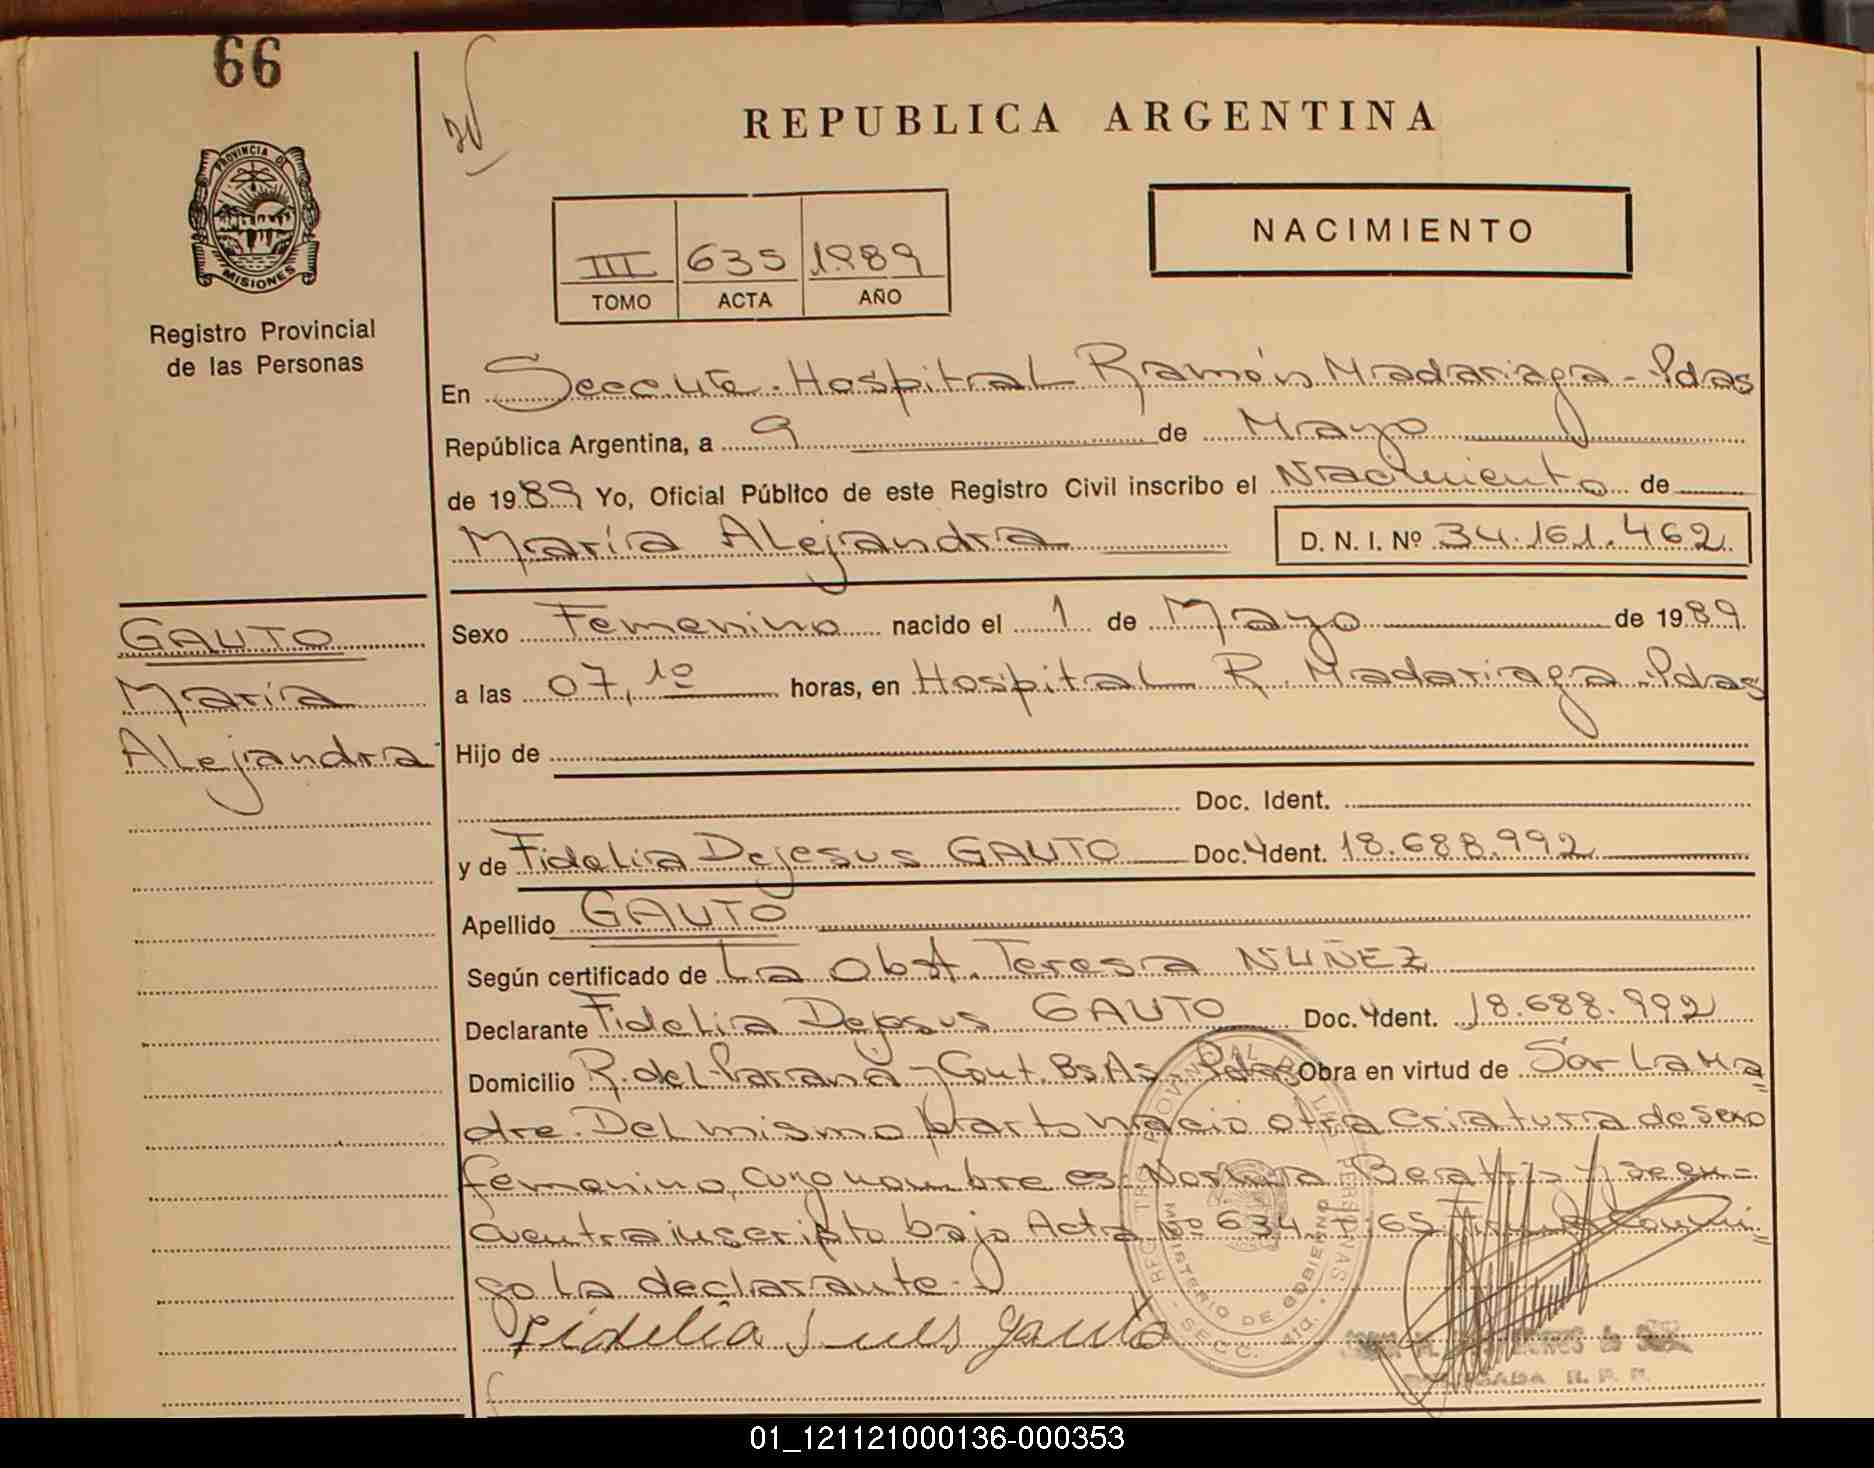 66
REPUBLICA ARGENTINA
PROVINCIA DE
MISIONES
Registro Provincial
de las Personas
III 635 1989
TOMO ACTA AÑO
NACIMIENTO
En Secc. 4ta. Hospital Ramón Madariaga - Pdas
República Argentina, a 9 de Mayo
de 1989 Yo, Oficial Público de este Registro Civil inscribo el Nacimiento de
María Alejandra D. N. I. Nº 34.161.462
GAUTO
María
Alejandra
Sexo Femenino nacido el 1 de Mayo de 1989
a las 07,10 horas, en Hospital R. Madariaga - Pdas
Hijo de
Doc. Ident.
y de Fidelia Dejesus GAUTO Doc. Ident. 18.688.992
Apellido GAUTO
Según certificado de La Obst. Teresa NUÑEZ
Declarante Fidelia Dejesus GAUTO Doc. Ident. 18.688.992
Domicilio R. del Paraná y Gout. Bs As. Pdas Obra en virtud de Ser la Ma
dre. Del mismo parto nació otra criatura de sexo
femenino, cuyo nombre es: Norma Beatriz y se en-
cuentra inscripto bajo Acta Nº 634. Fº 65. Firma conmi
go la declarante.
Fidelia Gauto
REG. PROVINCIAL DE LAS PERSONAS
MINISTERIO DE GOBIERNO
SECC. 4ta.
DELEGADA R. P. P.
01_121121000136-000353